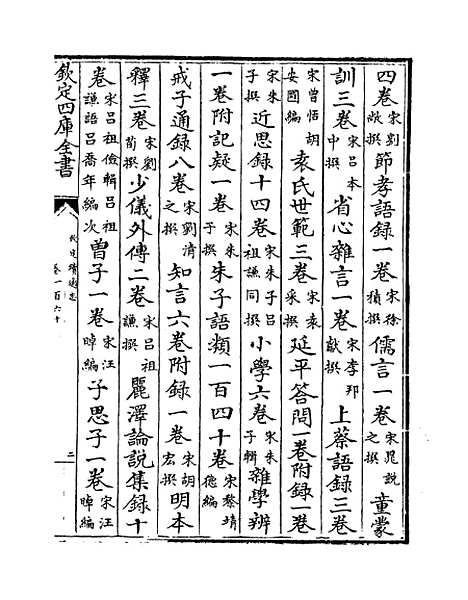 四卷宋劉敞撰節孝語録一卷宋徐積撰儒言一卷宋晁説之撰童蒙
訓三卷宋吕本中撰省心雜言一卷宋李邦獻撰上蔡語録三卷
宋曾恬胡安國編袁氏世範三卷宋袁采撰延平答問一卷附録一卷
宋朱子撰近思録十四卷宋朱子吕祖謙同撰小學六卷宋朱子輯雜學辨
一卷附記疑一卷宋朱子撰朱子語類一百四十卷宋黎靖德編
戒子通録八卷宋劉清之撰知言六卷附録一卷宋胡宏撰明本
釋三卷宋劉荀撰少儀外傳二卷宋吕祖謙撰麗澤論説集録十
卷宋吕祖儉輯吕祖謙語吕喬年編次曽子一卷宋汪晫編子思子一卷宋汪晫編
欽定四庫全書
卷一百六十
二